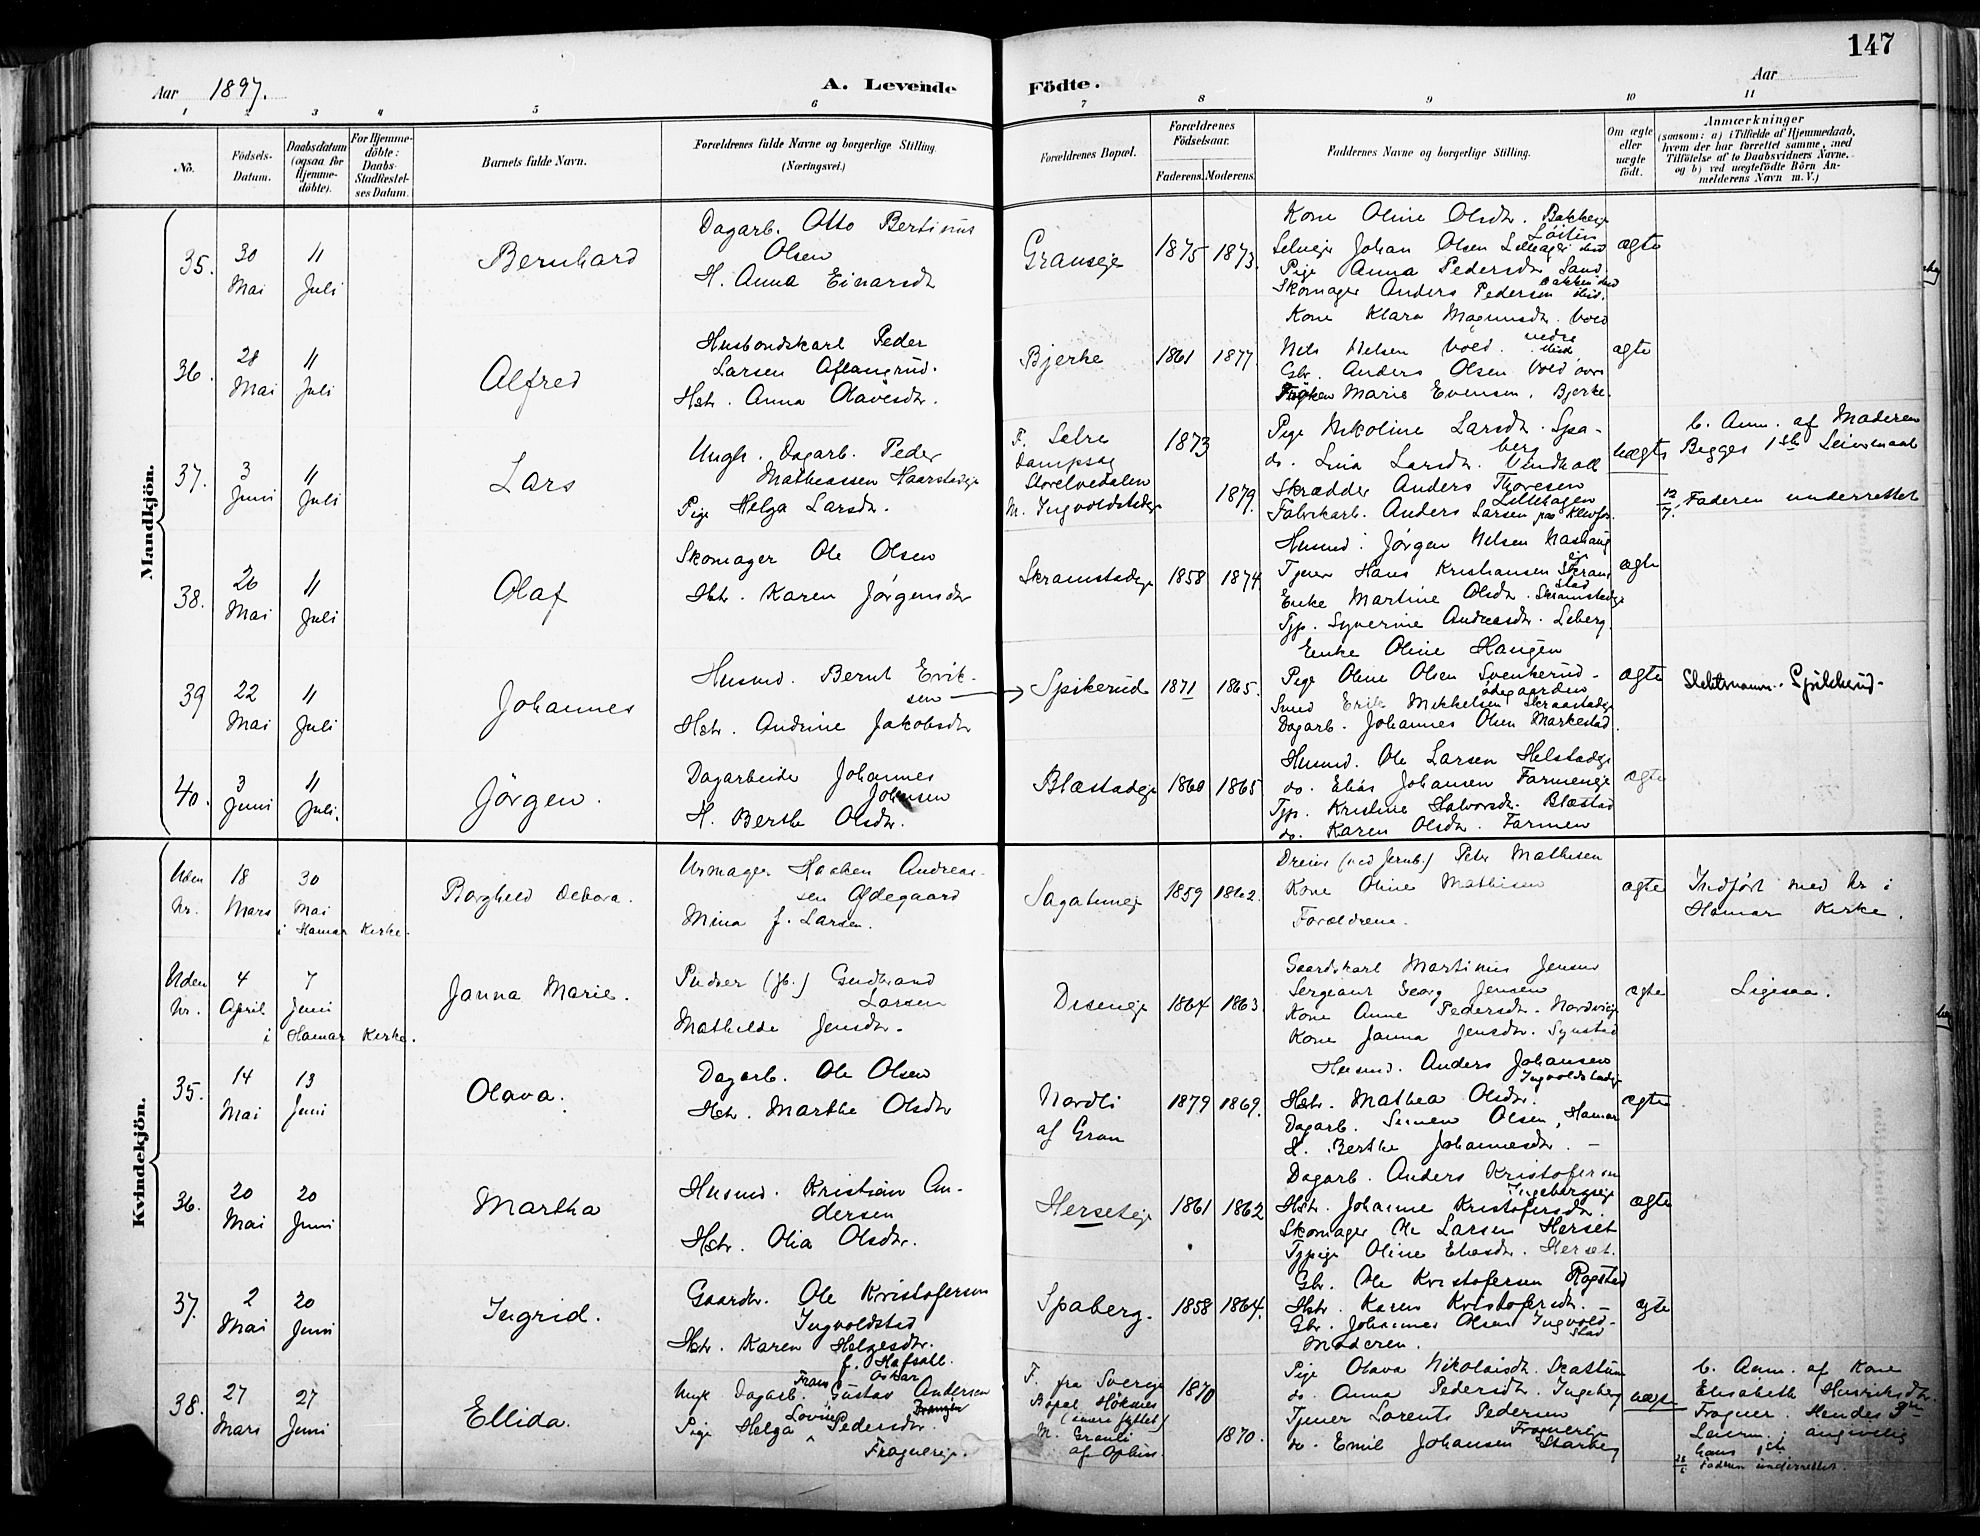 147
Aar 1897.
A. Levende Födte.
Aar
1 2 3 4 5 6 7 8 9 10 11
No.
Födsels-
Datum.
Daabsdatum
(ogsaa for
Hjemme-
döbte).
For Hjemme-
döbte:
Daabs-
Stadfæstel-
ses Datum.
Barnets fulde Navn.
Forældrenes fulde Navne og borgerlige Stilling.
(Næringsvei.)
Forældrenes Bopæl.
Forældrenes
Födselsaar.
Faderens. Moderens.
Faddernes Navne og borgerlige Stilling.
Om ægte
eller
uægte
født.
Anmærkninger
(saasom: a) i Tilfælde af Hjemmedaab,
hvem der har forrettet samme, med
Tilföielse af to Daabsvidners Navne.
og b) ved uægtefödte Börn An-
melderens Navn m. V.)
Mandkjön.
35.
30
Mai
11
Juli
Bernhard
Dagarb. Otto Bertinus
Olsen
H. Anna Einarsdtr
Granseje
1875 1873.
Kone Oline Olsdtr. Bakkeeje
Löiten
Selveier Johan Olsen
Pige Anna Pedersdtr Sand
Skomager Anders Pedersen
ægte
36.
28
Mai
11
Juli
Alfred
Husbondskarl Peder
Larsen Aflangrud.
Hstr. Anna Olavesdtr.
Bjerke
1861 1877
Kone Klara Magnusdtr. Vold
nedre
Nels Nelsen Vold.
Gbr. Anders Olsen Vold övre
Frøken Marie Evensen. Bjerke.
ægte
37.
3
Juni
11
Juli
Lars
Ungk. Dagarb. Peder
Matheassen Haarstadeje
Pige Helga Larsdtr.
F. Selre
Dampsag
Storelvedalen
M. Ingvoldstadeje
1873
1879.
Pige Nikoline Larsdtr. Spa-
berg
do. Lina Larsdtr. Vindkoll
Skrædder Anders Thoresen
Lillehagen
Fabrikarb. Anders Larsen paa Klevfos
uægte
b. Anm. af Moderen
Begges 1ste Leiermaal
12/7. Faderen underrettet
38.
20
Mai
11
Juli
Olaf
Skomager Ole Olsen
Hstr. Karen Jørgensdtr
Skramstadeje
1858 1874
Husmd. Jørgen Nilsen
Tjener Hans Kristiansen Skram
stad
Enke Martine Olsdtr. Skramstadeje
Tjp. Syverine Andreasdtr. Liberg.
ægte
39
22
Mai
11
Juli
Johannes
Husmd. Bernt Erik-
sen
Hstr. Andrine Jakobsdtr
Spikerud
1871 1865.
Enke Oline Haugen
Pige Oline Olsen Svenkerud-
ødegaarden
Smed Erik Mikkelsen Skraastadeje
Dagarb. Johannes Olsen Markestad.
ægte
Slektsnavn: Spikkerud.
40.
3
Juni
11
Juli.
Jørgen.
Dagarbeider Johannes
Johansen
H. Berthe Olsdtr.
Blæstadeje
1860 1865
Husmd. Ole Larsen Helstadeje
do. Elias Johansen Farmeneje
Tjp. Kristine Halvorsdtr. Blæstad
do. Karen Olsdtr. Farmen
ægte
Kvindekjön.
Uden
Nr.
18
Mars
30
Mai
i Hamar Kirke.
Borghild Debora.
Urmager Haaken Andreas-
sen Ødegaard
Mina f. Larsen.
Sagatuneje
1859 1862.
Dreier (ved Jernb.) Peter Mathisen
Kone Oline Mathisen
Forældrene.
ægte
Indført med Nr i
Hamar Kirke.
Uden
Nr.
4
April
7
Juni
i Hamar Kirke.
Janna Marie.
Pudser (jb.) Gudbrand
Larsen
Mathilde Jensdtr.
Diseneje
1864 1863.
Gaardskarl Martinus Jensen
Sergeant Georg Jensen
Kone Anne Pedersdtr. Nordvigeje
Kone Janna Jensdtr. Synstad
ægte
Ligesaa.
35.
14
Mai
13
Juni
Olava.
Dagarb. Ole Olsen
Hstr. Marthe Olsdtr
Nordli
af Gran
1879 1869.
Husmd. Anders Johansen
Ingvoldstadeje
Hstr. Mathea Olsdtr.
Dagarb. Simen Olsen, Hamar
H. Berthe Johannesdtr. —
ægte
36.
20
Mai
20
Juni
Martha
Husmd. Kristian An-
dersen
Hstr. Olia Olsdtr.
Herseteje
1861 1862
Dagarb. Anders Kristofersen
Ingebergeje
Hstr. Johanne Kristofersdtr
Skomager Ole Larsen Herset
Tjpige Oline Eliasdtr. Herset.
ægte
37.
2
Mai
20
Juni
Ingrid.
Gaardbr. Ole Kristofersen
Ingvoldstad
Hstr. Karen Helgesdtr.
f. Hafsall.
Spaberg.
1858 1864.
Gbr. Ole Kristofersen Rogsted
Hstr. Karen Kristofersdtr. —
Gbr. Johannes Olsen Ingvold-
stad
Moderen.
ægte
38.
27
Mars
27
Juni
Ellida.
Frans Oskar
Ungk Dagarb. Gustav Andersen
Lovise
Pige Helga Pedersdtr.
Frognereje.
F. fra Sverige
Bopæl Höknes
(senere flyttet)
M. Granli
af Ophus
1870
1870.
Pige Olava Nikolaisdtr. Skattum
do. Anna Pedersdtr. Ingeberg
Tjener Lorents Pedersen
Frognereje
do. Emil Johansen Starberg
uægte
b. Anm. af Kone
Elisabeth Henriksdtr.
Frogner. Hendes 3die
Leierm.; angivelig
hans 1ste
28/6 Faderen underrettet.